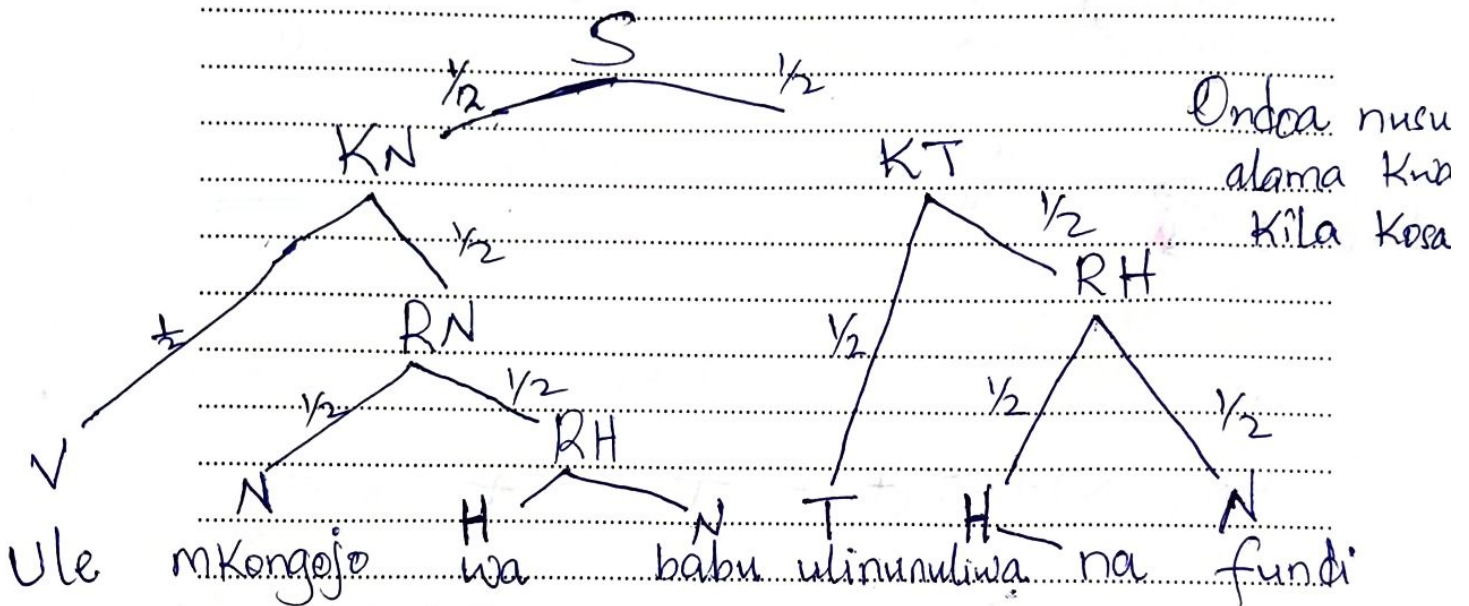 S
½ ½
Ondoa nusu
KN KT
alama Kwa
½ ½
Kila Kosa
RH
½ RN ½
½ ½ ½ ½
RH
V N H N T H N
Ule mkongojo wa babu ulinunuliwa na fundi